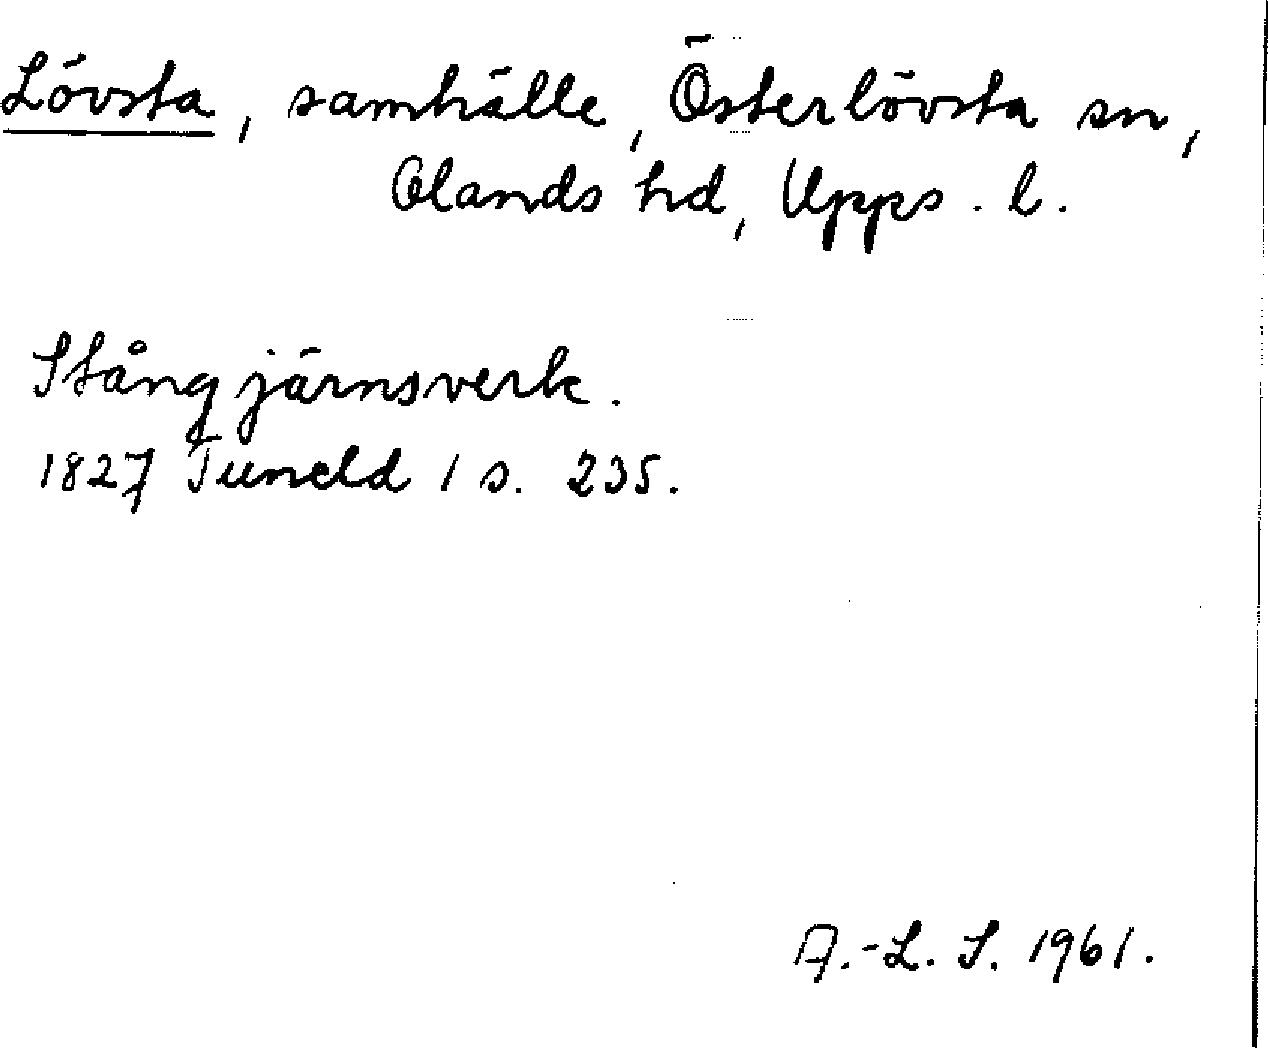 Lövsta, samhälle, Österlövsta sn,
Olands hd, Upps. l.
Stångjärnsverk.
1827 Tuneld 1 s. 235.
A.-L. S. 1961.